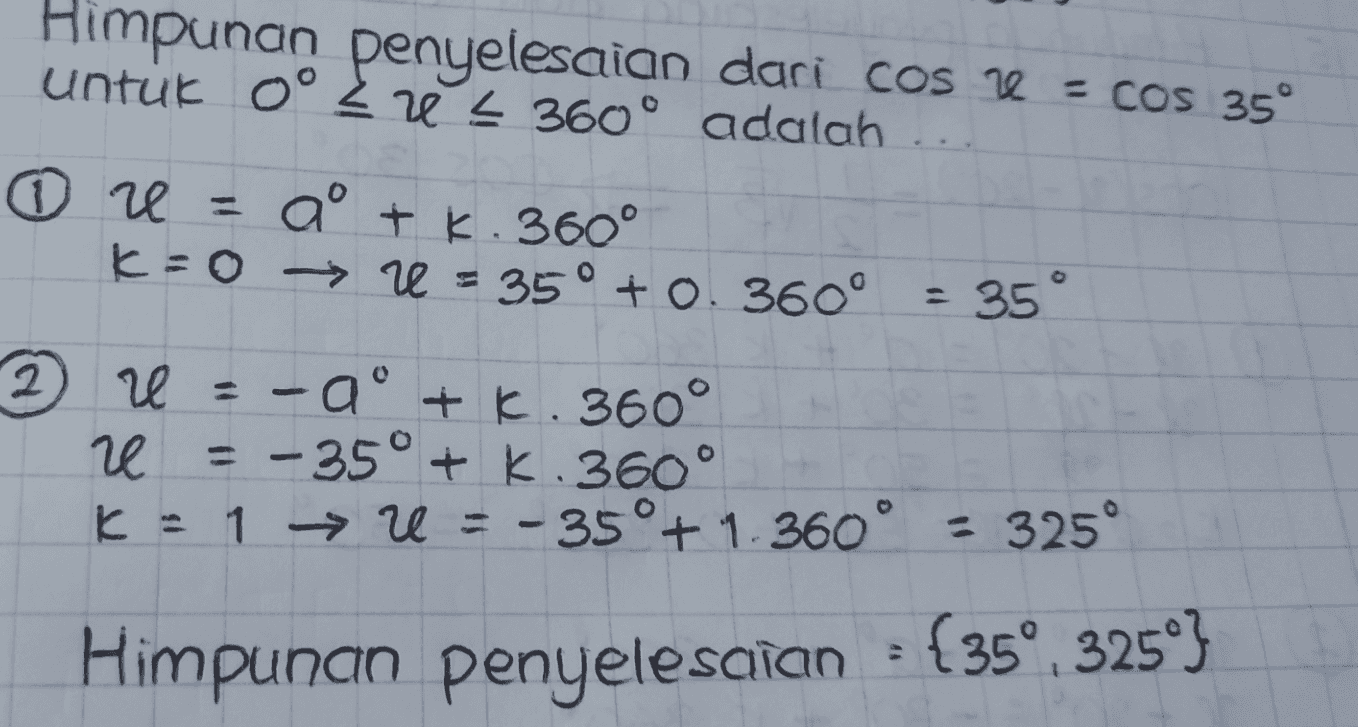 Himpunan penyelesaian dari cos x = cos 35°
untuk 0° ≤ x ≤ 360° adalah ...
① x = a° + k . 360°
k = 0 → x = 35° + 0. 360° = 35°
② x = -a° + k . 360°
x = -35° + k . 360°
k = 1 → x = -35° + 1. 360° = 325°
Himpunan penyelesaian = {35°, 325°}